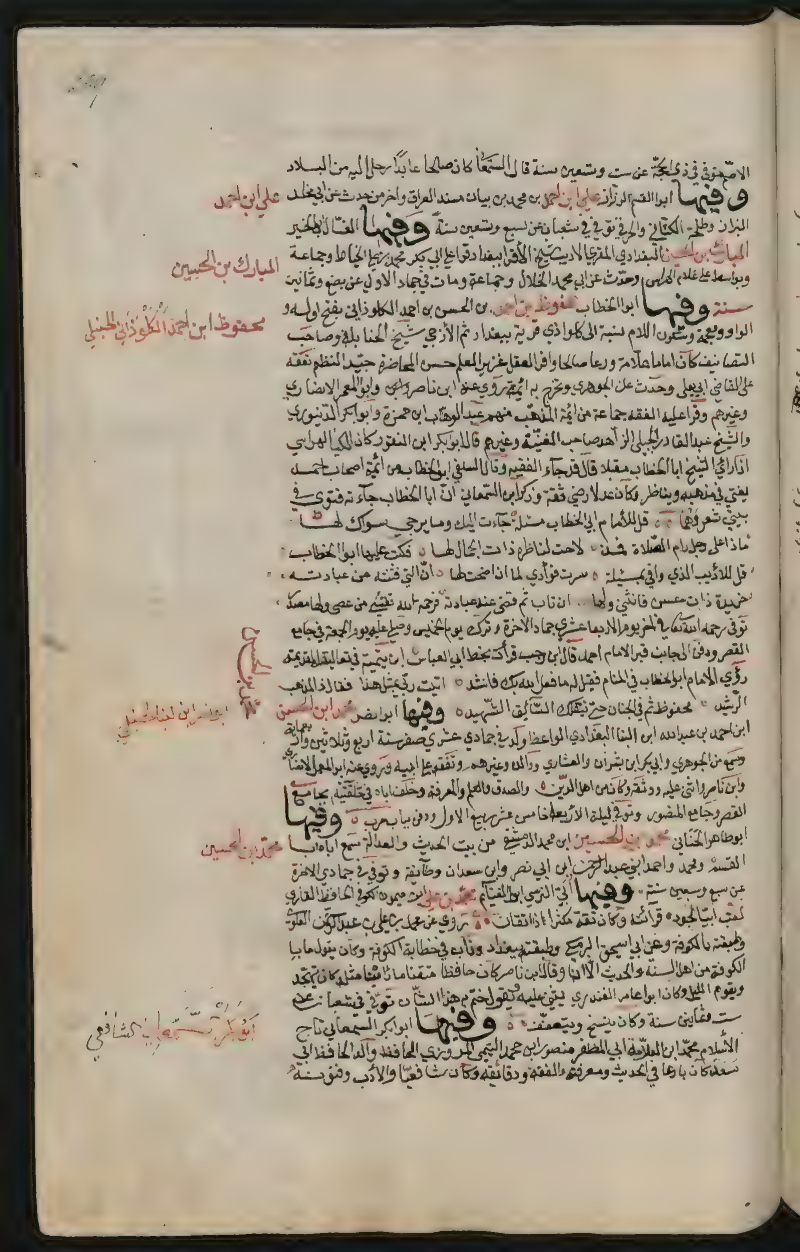 الاصم توفي في ذي الحجة عن ست وتسعين سنة قال السمعاني كان صالحا عابدا رحل اليه من البلاد
وفيها ابو القسم الرزاز علي ابن احمد بن محمد بن بيان مسند العراق واخر من حدث عن ابي مخلد
علي ابن احمد
البزاز وطلحة الكتاني والحرفي توفي في شعبان عن سبع وتسعين سنة وفيها الغسال ابو الخير
المبارك بن الحسين البغدادي المقري الاديب شيخ الاقرا ببغداد قرا على ابي بكر محمد بن علي الخياط وجماعة
المبارك بن الحسين
وبواسط على غلام الهراس وحدث عن ابي محمد الخلال وجماعة ومات في جماد الاولى عن بضع وثمانين
سنة وفيها ابو الخطاب محفوظ بن احمد بن الحسن بن احمد الكلوذاني بفتح اوله و
محفوظ ابن احمد الكلوذاني الحنبلي
الواو ومعجمة وسكون اللام نسبة الى كلواذي قرية ببغداد ثم الازجي شيخ الحنابلة وصاحب
التصانيف كان اماما علامة ورعا صالحا وافر العقل غزير العلم حسن المحاضرة جيد النظم تفقه
على القاضي ابي يعلى وحدث عن الجوهري وتخرج به ائمة روي عنه ابن ناصر وابو المعمر الانصاري
وغيرهم وقرا عليه الفقه جماعة من ائمة المذهب منهم عبد الوهاب ابن حمزة وابو بكر الدينوري
والشيخ عبد القادر الجيلي الزاهد صاحب الغنية وغيرهم قال ابو بكر ابن النقور كان الكيا الهراسي
اذا راي الشيخ ابا الخطاب مقبلا قال قد جاء الفقيه وقال السلفي ابو الخطاب من ائمة اصحاب احمد
يفتي في مذهبه ويناظر وكان عدلا رضي ثقة وذكر ابن السمعاني ان ابا الخطاب جاءته فتوى في
بيتي شعر وهما قل للامام ابي الخطاب مسئلة جاءت اليك وما يرجى سواك لها
ماذا على رجل رام الصلاة فمذ لاحت لناظره ذات الجمال لها فكتب عليها ابو الخطاب
قل للاديب الذي وافى بمسئلة سرت فؤادي لما ان اصخت لها ان التي فتنته من عبادته
خريدة ذات حسن فانثنى ولها ان تاب ثم قضى عنه عبادته فرحمة الله تغشى من عصى ولها
توفي رحمه الله تعالى في اخر يوم الاربعا عشري جماد الاخرة وترك يوم الخميس وصلي عليه يوم الجمعة في جامع
القصر ودفن الى جانب قبر الامام احمد قال ابن رجب قرات بخط ابي العباس ابن تيمية في تعاليقه القديمة
رؤي الامام ابو الخطاب في المنام فقيل له ما فعل الله بك فانشد اتيت ربي بمثل هذا فقال ذا المذهب
الرشيد محفوظ نم في الجنان حتى ينقلك السائق الشهيد وفيها ابو نصر محمد ابن الحسن
محمد بن الحسن
ابو نصر ابن البنا الحنبلي
ابن احمد بن عبد الله ابن البنا البغدادي الواعظ ولد في حادي عشري صفر سنة اربع وثلاثين واربعماية
وسمع من الجوهري وابي بكر ابن بشران والعشاري ووالده وغيرهم وتفقه على ابيه وروي عنه ابو المعمر الانصاري
وابن ناصر واثنى عليه ووثقه وكان من اهل الدين والصدق والعلم والمعرفة وخلف اباه في حلقتيه بجامع
القصر وجامع المنصور وتوفي ليلة الاربعا خامس عشر ربيع الاول ودفن بباب حرب وفيها
ابو طاهر الحنائي محمد بن الحسين ابن محمد الدمشقي من بيت الحديث والعدالة سمع اباه ابا
محمد بن الحسين
القسم ومحمد واحمد ابني عبد الرحمن ابن ابي نصر وابن سعدان وطائفة وتوفي في جمادي الاخرة
عن سبع وسبعين سنة وفيها ابي النرسي ابو الغنائم محمد بن علي ابن ميمون الكوفي الحافظ القاري
لقب ابيا لجودة قراته وكان ثقة مكثرا ذا اتقان روي عن محمد بن علي بن عبد الرحمن العلوي
وطبقته بالكوفة وعن ابي اسحق البرمكي وطبقته ببغداد وناب في خطابة الكوفة وكان يقول ما بـ
الكوفة من اهل السنة والحديث الا انا وقال ابن ناصر كان حافظا متقنا ما راينا مثله كان يتهجد
ويقوم الليل وكان ابو عامر العبدري يثني عليه ويقول ختم به هذا الشان توفي في شعبان عن
ست وثمانين سنة وكان ينسخ ويتعفف وفيها ابو بكر السمعاني تاج
ابو بكر السمعاني الشافعي
الاسلام محمد ابن العلامة ابي المظفر منصور ابن محمد التيمي المروزي الحافظ والد الحافظ ابي
سعد كان بارعا في الحديث ومعرفته والفقه ودقائقه وكان شافعيا والادب وفنونه